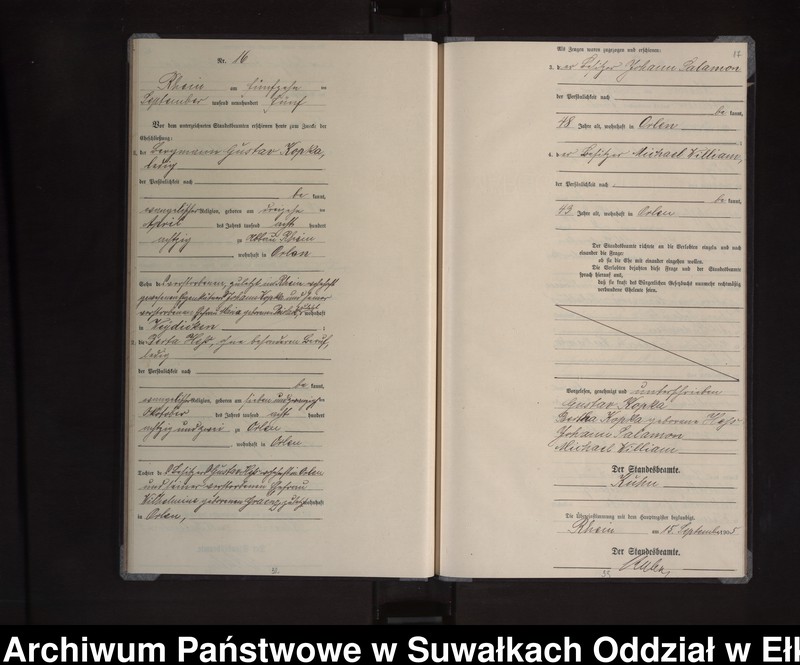 Nr. 16
Rhein am fünfzehn ten
September tausend neunhundert fünf
Vor dem unterzeichneten Standesbeamten erschienen heute zum Zweck der
Eheschließung:
1. der Bergmann Gustav Kopka,
ledig
der Persönlichkeit nach
be kannt,
evangelischer Religion, geboren am dreizehn ten
April des Jahres tausend acht hundert
achtzig zu Rhein
, wohnhaft in Orlen
Sohn des verstorbenen, zuletzt in Rhein wohnhaft
gewesenen Johann Kopka und seiner
verstorbenen Ehefrau geborenen wohnhaft
in Weydicken ;
2. die Berta Heß, ohne besonderen Beruf,
ledig
der Persönlichkeit nach
be kannt,
evangelischer Religion, geboren am sieben und zwanzig ten
Oktober des Jahres tausend acht hundert
achtzig und zwei zu Orlen
, wohnhaft in Orlen
Tochter des Besitzers Gustav Heß wohnhaft in Orlen
und seiner verstorbenen Ehefrau
Wilhelmine geborenen zuletzt wohnhaft
in Orlen,
Als Zeugen waren zugezogen und erschienen:
3. der Besitzer Johann Salamon
der Persönlichkeit nach
be kannt,
48 Jahre alt, wohnhaft in Orlen ;
4. der Besitzer Michael William,
der Persönlichkeit nach
be kannt,
43 Jahre alt, wohnhaft in Orlen
Der Standesbeamte richtete an die Verlobten einzeln und nach
einander die Frage:
ob sie die Ehe mit einander eingehen wollen.
Die Verlobten bejahten diese Frage und der Standesbeamte
sprach hierauf aus,
daß sie kraft des Bürgerlichen Gesetzbuchs nunmehr rechtmäßig
verbundene Eheleute seien.
Vorgelesen, genehmigt und unterschrieben
Gustav Kopka
Bertha Kopka geborene Heß
Johann Salamon
Michael William
Der Standesbeamte.
Kuhn
Die Übereinstimmung mit dem Hauptregister beglaubigt.
Rhein am 15. September 05
Der Standesbeamte.
Archiwum Państwowe w Suwałkach Oddział w Ełk